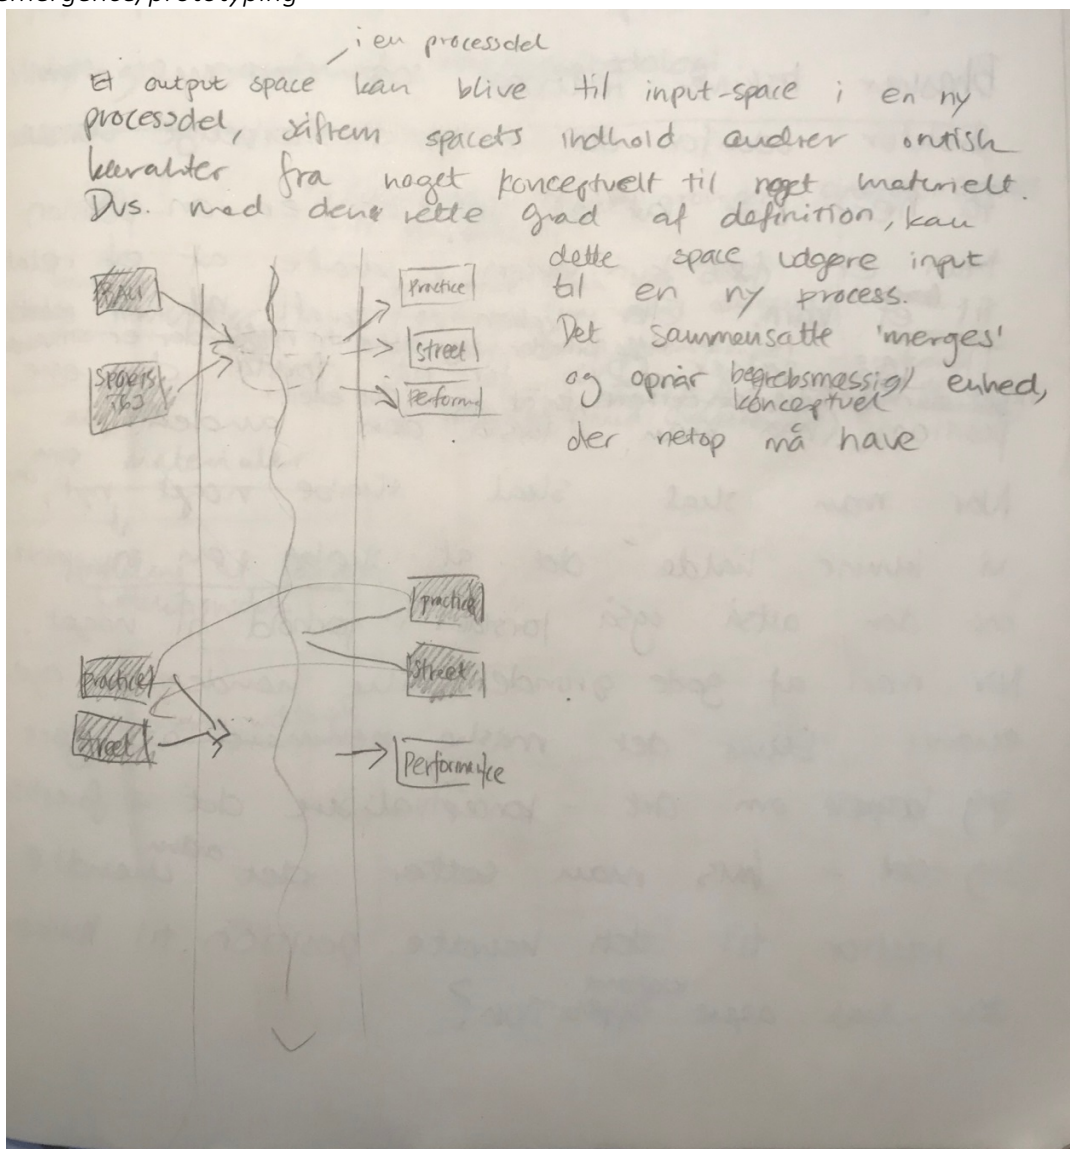 emergence/prototyping
i en processdel
Et output space kan blive til input-space i en ny
processdel, siftrem spacets indhold ændrer ontisk
karakter fra noget konceptuelt til noget materielt.
Dvs. med den rette grad af definition, kan
dette space udgøre input
til en ny process.
Det sammensatte 'merges'
og opnår begrebsmæssig/ enhed,
konceptuel
der netop må have
Practice
Street
Perform
practice
street
practice
street
Performance